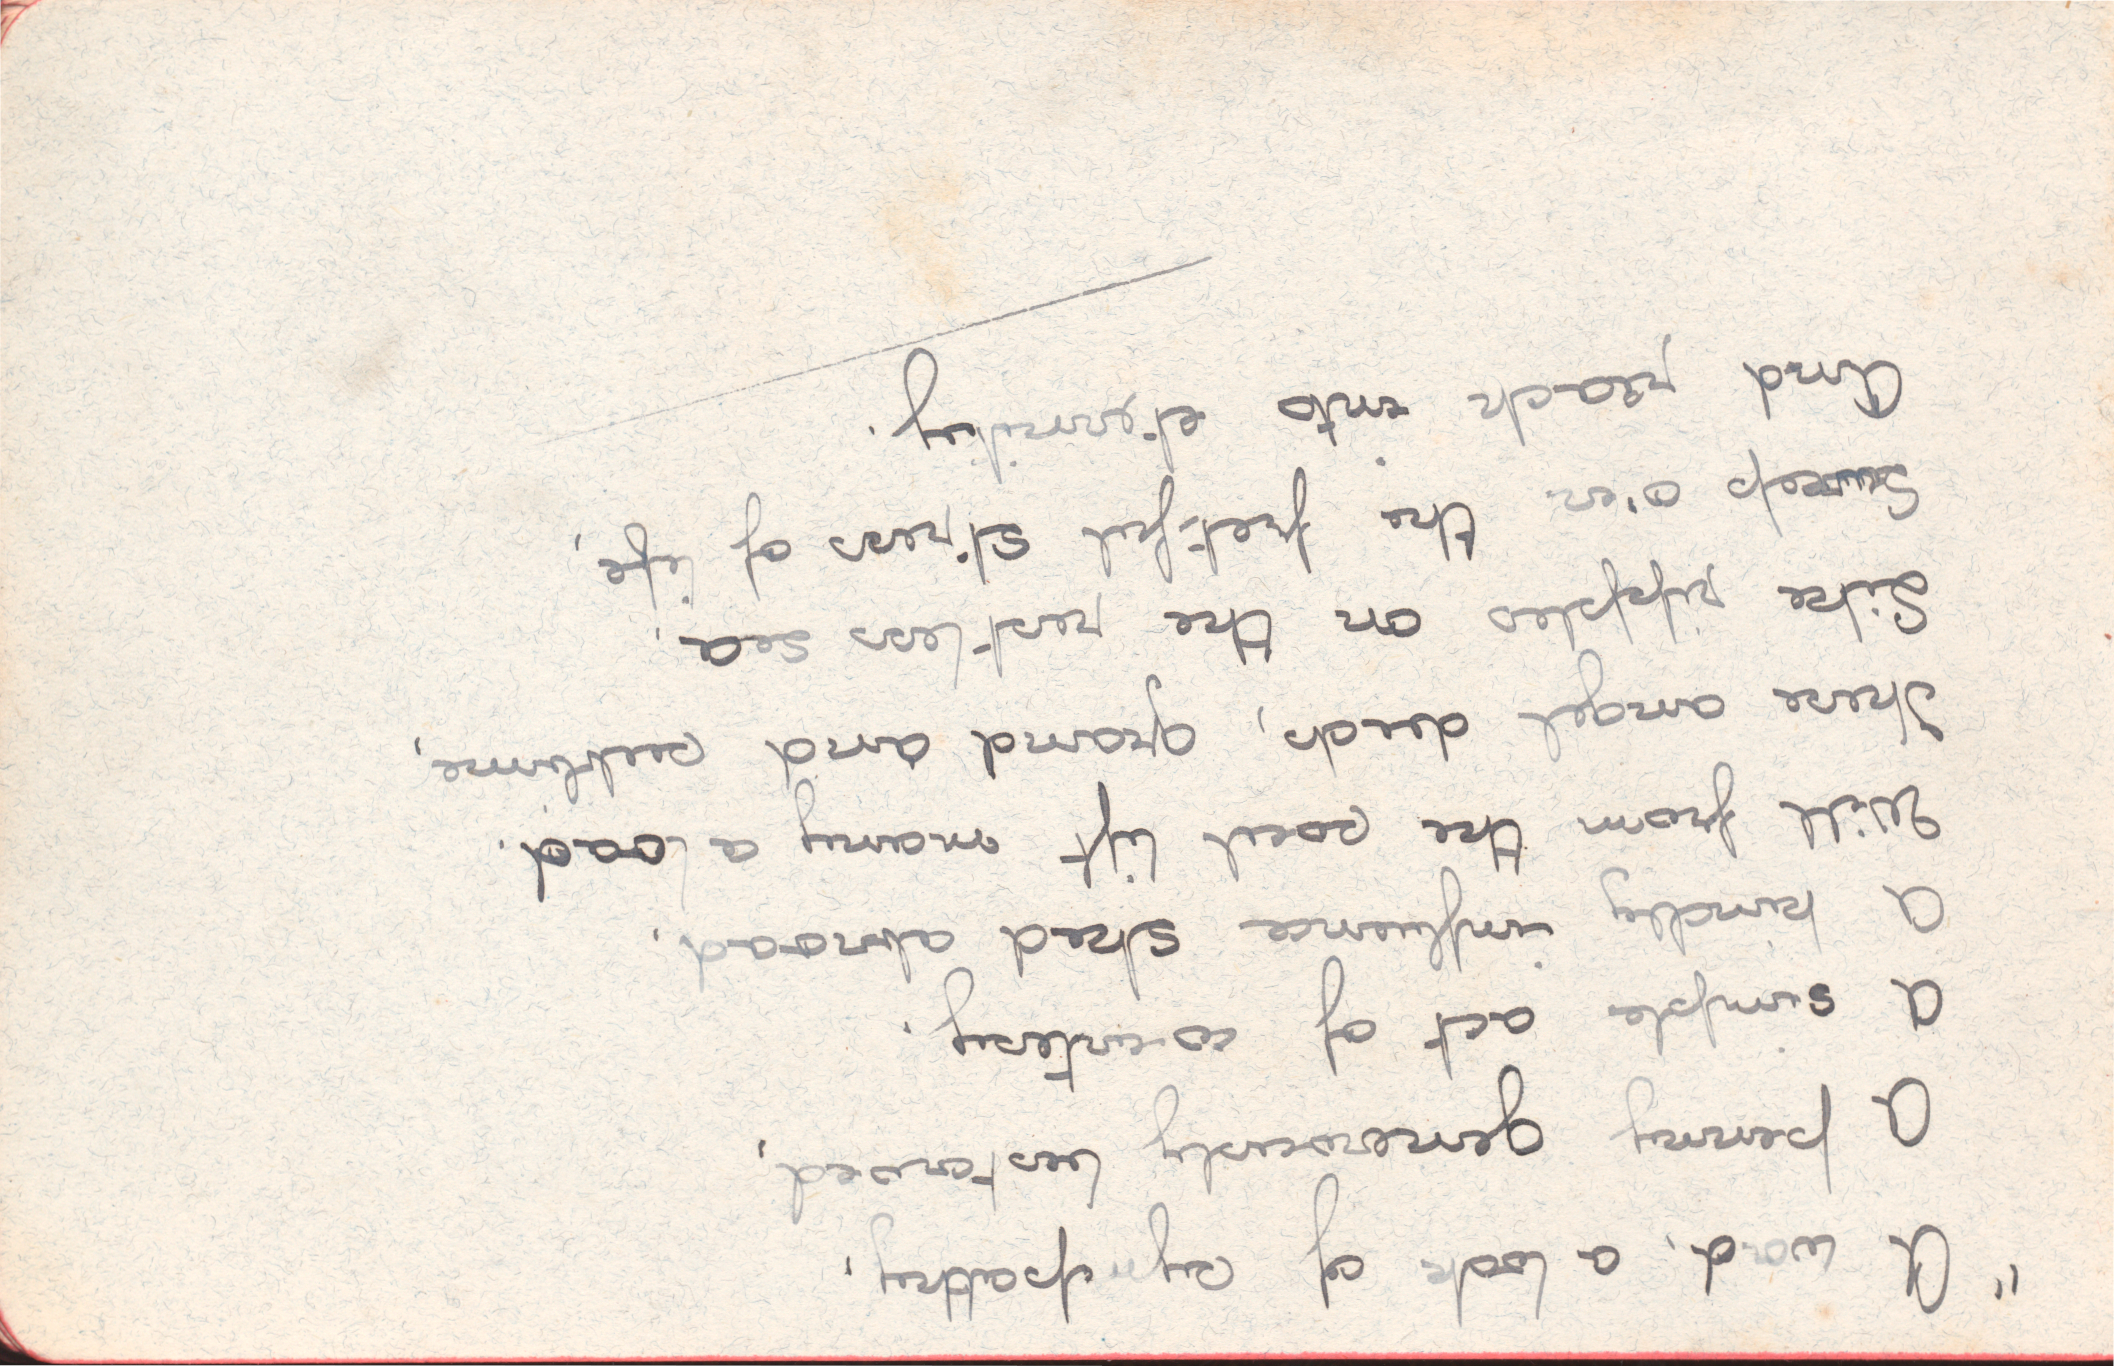 "A word, a look of sympathy,
A penny generously bestowed,
A simple act of courtesy.
A kindly influence shed abroad,
Will from the soul lift many a load.
These angel deeds, grand and sublime,
Like ripples on the restless sea.
Sweep o'er the fretful stress of life,
And reach into eternity.